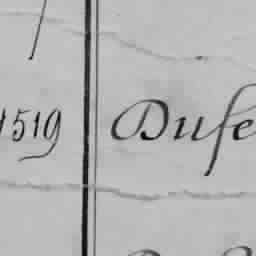 1519 Dufe